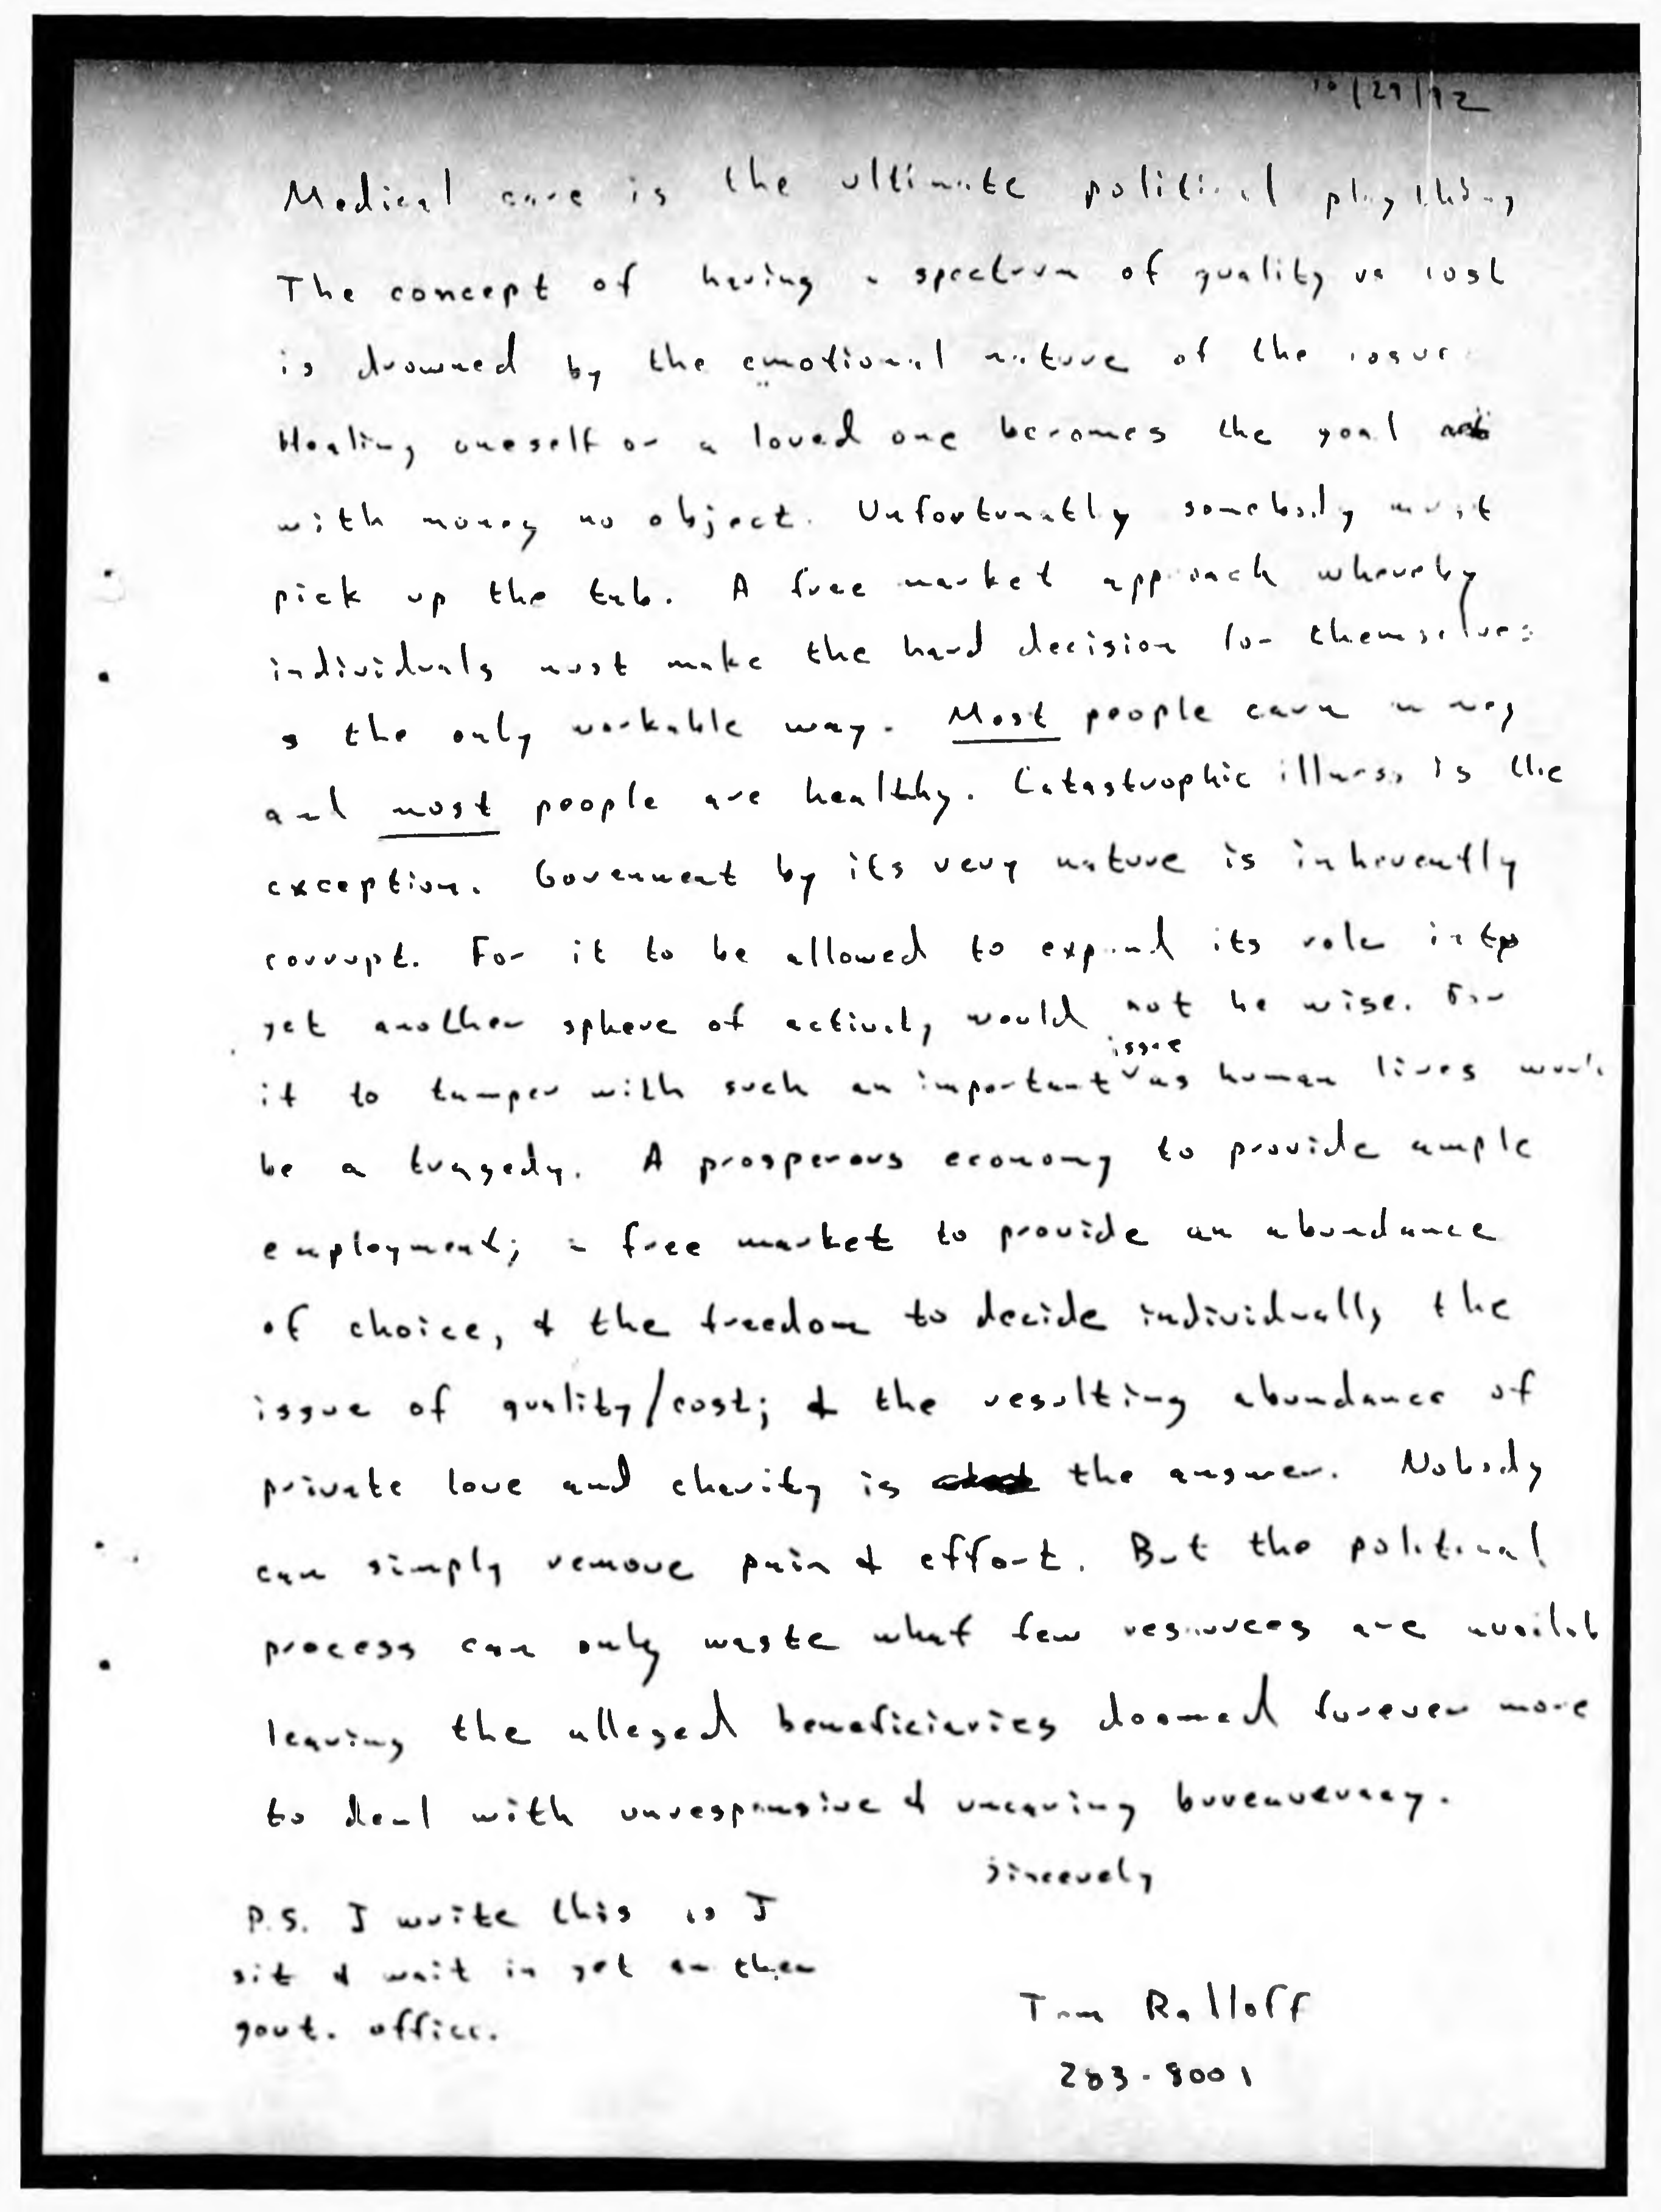 10/29/92
Medical care is the ultimate political plaything
The concept of having a spectrum of quality vs cost
is drowned by the emotional nature of the issue
Healing oneself or a loved one becomes the goal
with money no object. Unfortunatly somebody must
pick up the tab. A free market approach whereby
individuals must make the hard decision for themselves
is the only workable way. Most people earn money
and most people are healthy. Catastrophic illness is the
exception. Goverment by its very nature is inherently
corrupt. For it to be allowed to expand its role into
yet another sphere of activity would not be wise. For
issue
it to tamper with such an important as human lives would
be a tragedy. A prosperous economy to provide ample
employment; a free market to provide an abundance
of choice, & the freedom to decide individually the
issue of quality/cost; & the resulting abundance of
private love and charity is the answer. Nobody
can simply remove pain & effort. But the political
process can only waste what few resources are availab
leaving the alleged beneficiaries doomed forever more
to deal with unresponsive & uncaring bureaucracy.
Sincerely
P.S. I write this as I
sit & wait in yet another
govt. office.
Tom Ralloff
283-8001